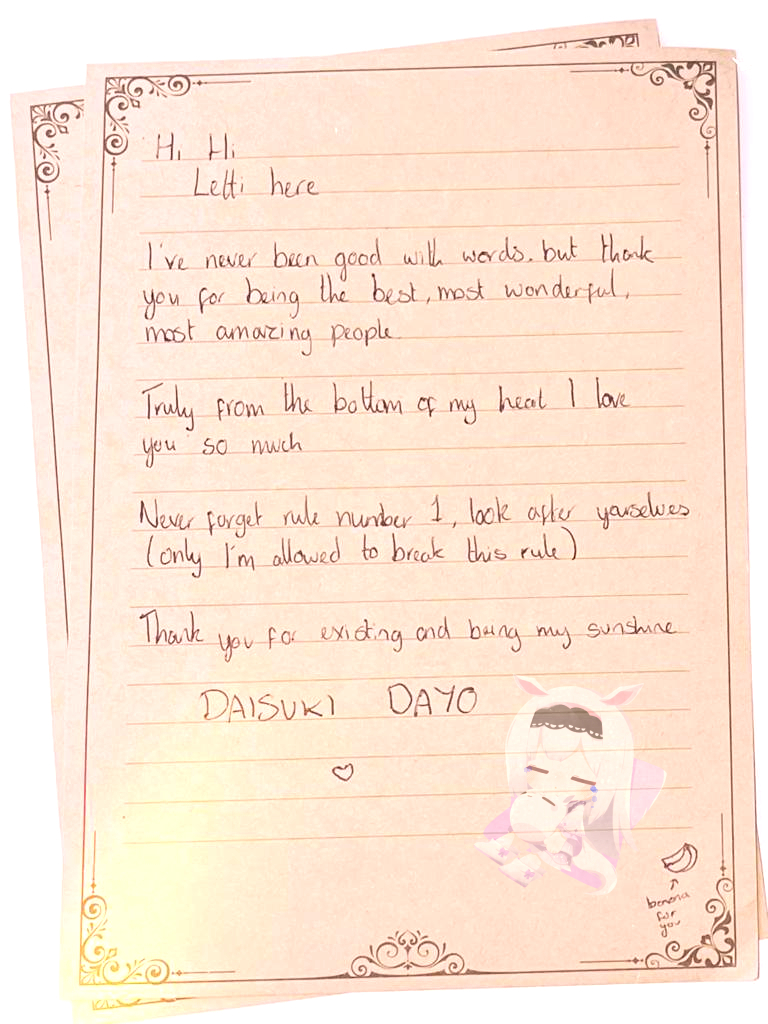 Hi Hi
Letti here
I've never been good with words, but thank
you for being the best, most wonderful,
most amazing people.
Truly from the bottom of my heart I love
you so much
Never forget rule number 1, look after yourselves
(only I'm allowed to break this rule)
Thank you for existing and being my sunshine
DAISUKI DAYO
banana
for
you